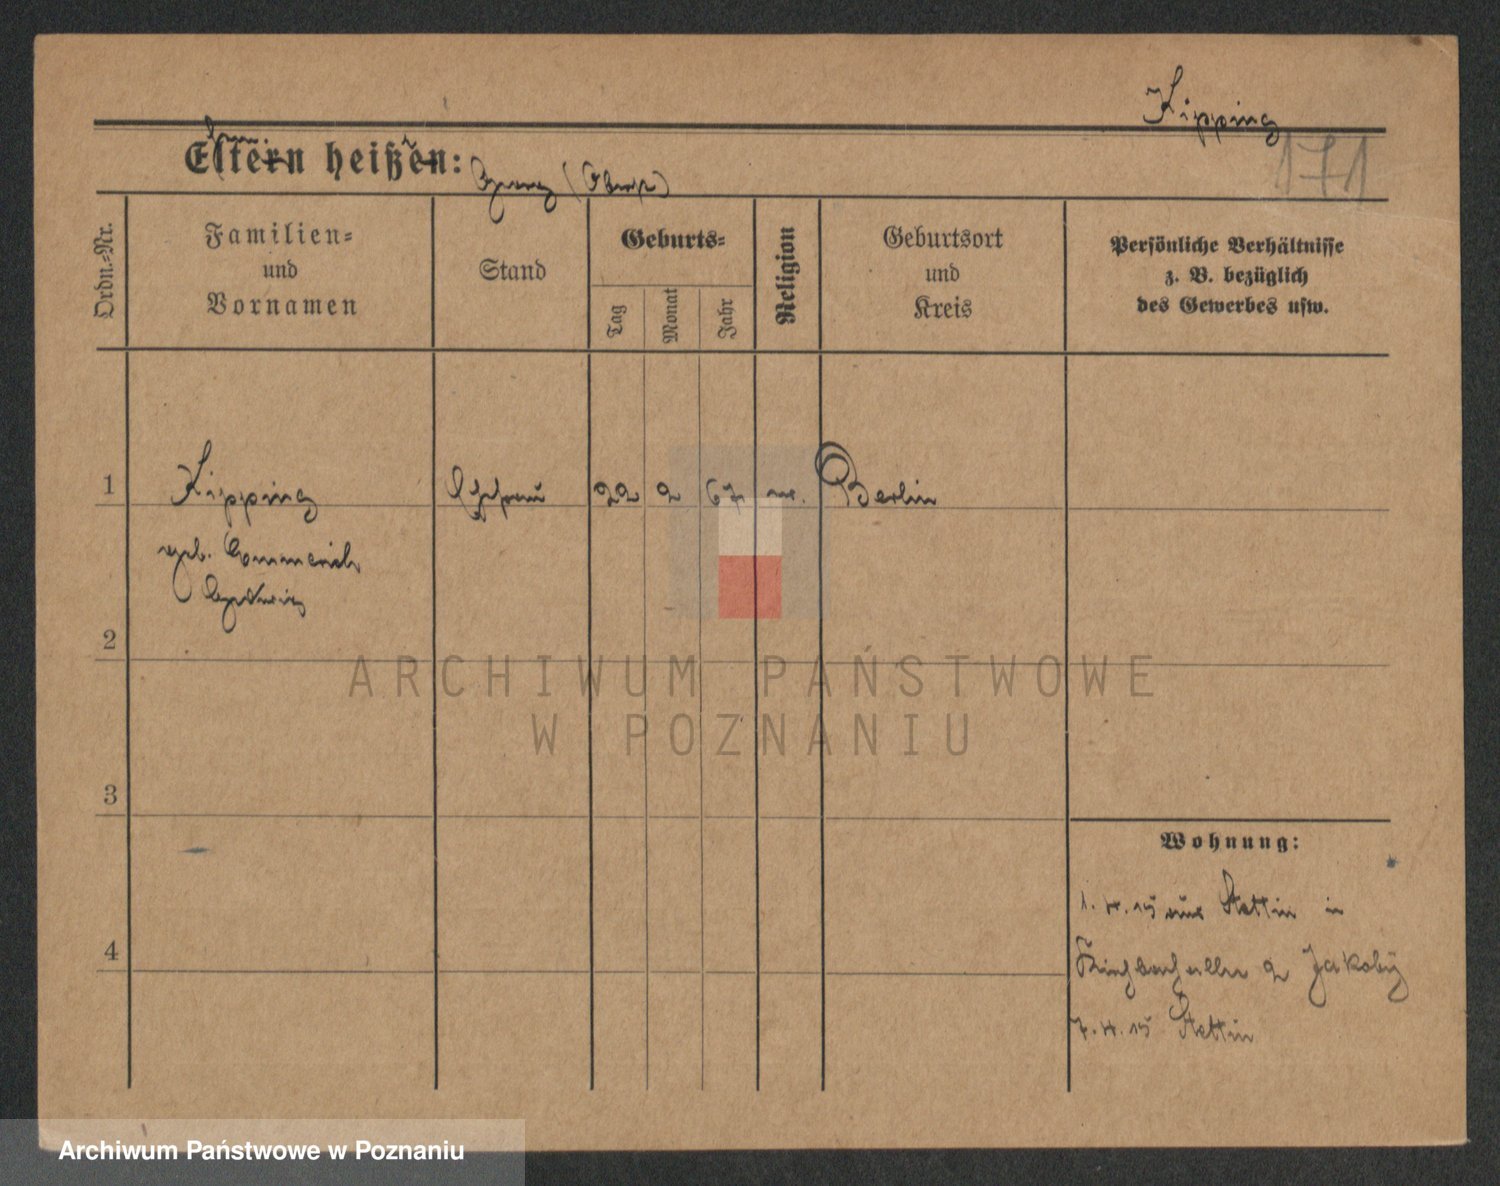 Kipping
171
Eltern heißen:
Ordn.-Nr.
Familien-
und
Vornamen
Stand
Geburts-
Tag
Monat
Jahr
Religion
Geburtsort
und
Kreis
Persönliche Verhältnisse
z. B. bezüglich
des Gewerbes usw.
1 Kipping Ehefrau 22 2 67 Berlin
geb.
Hedwig
2
3
4
Wohnung:
1. 4. 15 aus Stettin in
2 Jakoby
7. 4. 15 Stettin
ARCHIWUM PAŃSTWOWE
W POZNANIU
Archiwum Państwowe w Poznaniu